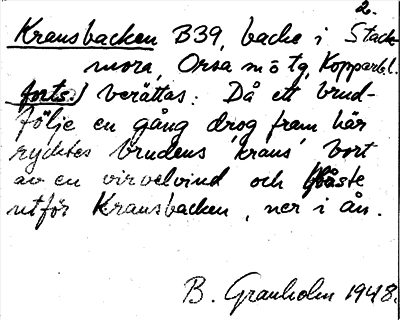 2.
Kransbacken B39, backe i Stack-
mora, Orsa sn o tg, Kopparbl.
(forts.) berättas: Då ett brud-
följe en gång drog fram här
rycktes brudens krans bort
av en virvelvind och blåste
utför Kransbacken, ner i ån.
B. Granholm 1948.